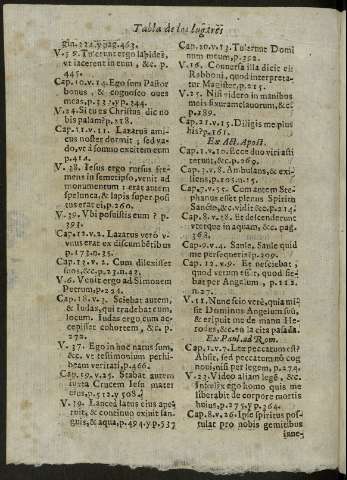 Tabla de los lugares
gin.322.y pag.463.
V.59. Tulerunt ergo lapides,
vt iacerent in eum, &c. p.
445.
Cap.10.v.14. Ego sum Pastor
bonus, & cognosco oues
meas, p.132.y p.244.
V.24. Si tu es Christus dic no
bis palam? p.218.
Cap.11.v.11. Lazarus ami-
cus noster dormit; sed va-
do, vt à somno excitem eum
p.414.
V.38. Iesus ergo rursus fre-
mens in semetipso, venit ad
monumentum: erat autem
spelunca, & lapis super posi
tus erat ei. p.260.
V.39. Vbi posuistis eum? p.
391.
Cap.12.v.2. Lazarus verò v-
unus erat ex discumbētibus
p.173.n.35.
Cap.13.v.2. Cum dilexisset
suos, &c. p.23.n.42.
V.6. Venit ergo ad Simonem
Petrum, p.224.
Cap.18.v.3. Sciebat autem,
& Iudas, qui tradebat eum,
locum. Iudas ergo cum ac-
cepisset cohortem, &c. p.
272.
V.37. Ego in hoc natus sum,
&c. vt testimonium perhi-
beam veritati, p.466.
Cap.19.v.25. Stabat autem
iuxta Crucem Iesu mater
eius, p.512.y 508.
V.39. Lancea latus eius ape-
ruit, & continuo exiuit san-
guis, & aqua, p.494.y p.537
Cap.20.v.13. Tulerunt Domi
num meum, p.392.
V.16. Conuersa illa dicit ei:
Rabboni, quod interpreta-
tur Magister, p.215.
V.25. Nisi videro in manibus
meis fixuram clauorum, &c.
p.189.
Cap.21.v.15. Diligis me plus
his? p.161.
Ex Act. Apost.
Cap.1.v.10. Ecce duo viri asti
terunt, &c. p.269.
Cap.3.v.8. Ambulans, & exi-
liens, p.105.n.15.
Cap.7.v.55. Cum autem Ste-
phanus esset plenus Spiritu
Sancto, &c. vidit &c. p.214.
Cap.8.v.38. Et descenderunt
vterque in aquam, &c. pag.
363.
Cap.9.v.4. Saule, Saule quid
me persequeris? p.209.
Cap.12.v.9. Et nesciebat,
quod verum esset, quod fie-
bat per Angelum, p.112.
n.27.
V.11. Nunc scio verè, quia mi-
sit Dominus Angelum suū,
& eripuit me de manu He-
rodes, &c. en la cita pasada.
Ex Paul. ad Rom.
Cap.7.v.7. Lex peccatum est?
Absit, sed peccatum nō cog
noui, nisi per legem, p.274.
V.23. Video aliam legē, &c.
Infœlix ego homo quis me
liberabit de corpore mortis
huius, p.275.y p.364.
Cap.8.v.26. Ipse spiritus pos-
tulat pro nobis gemitibus
inne-